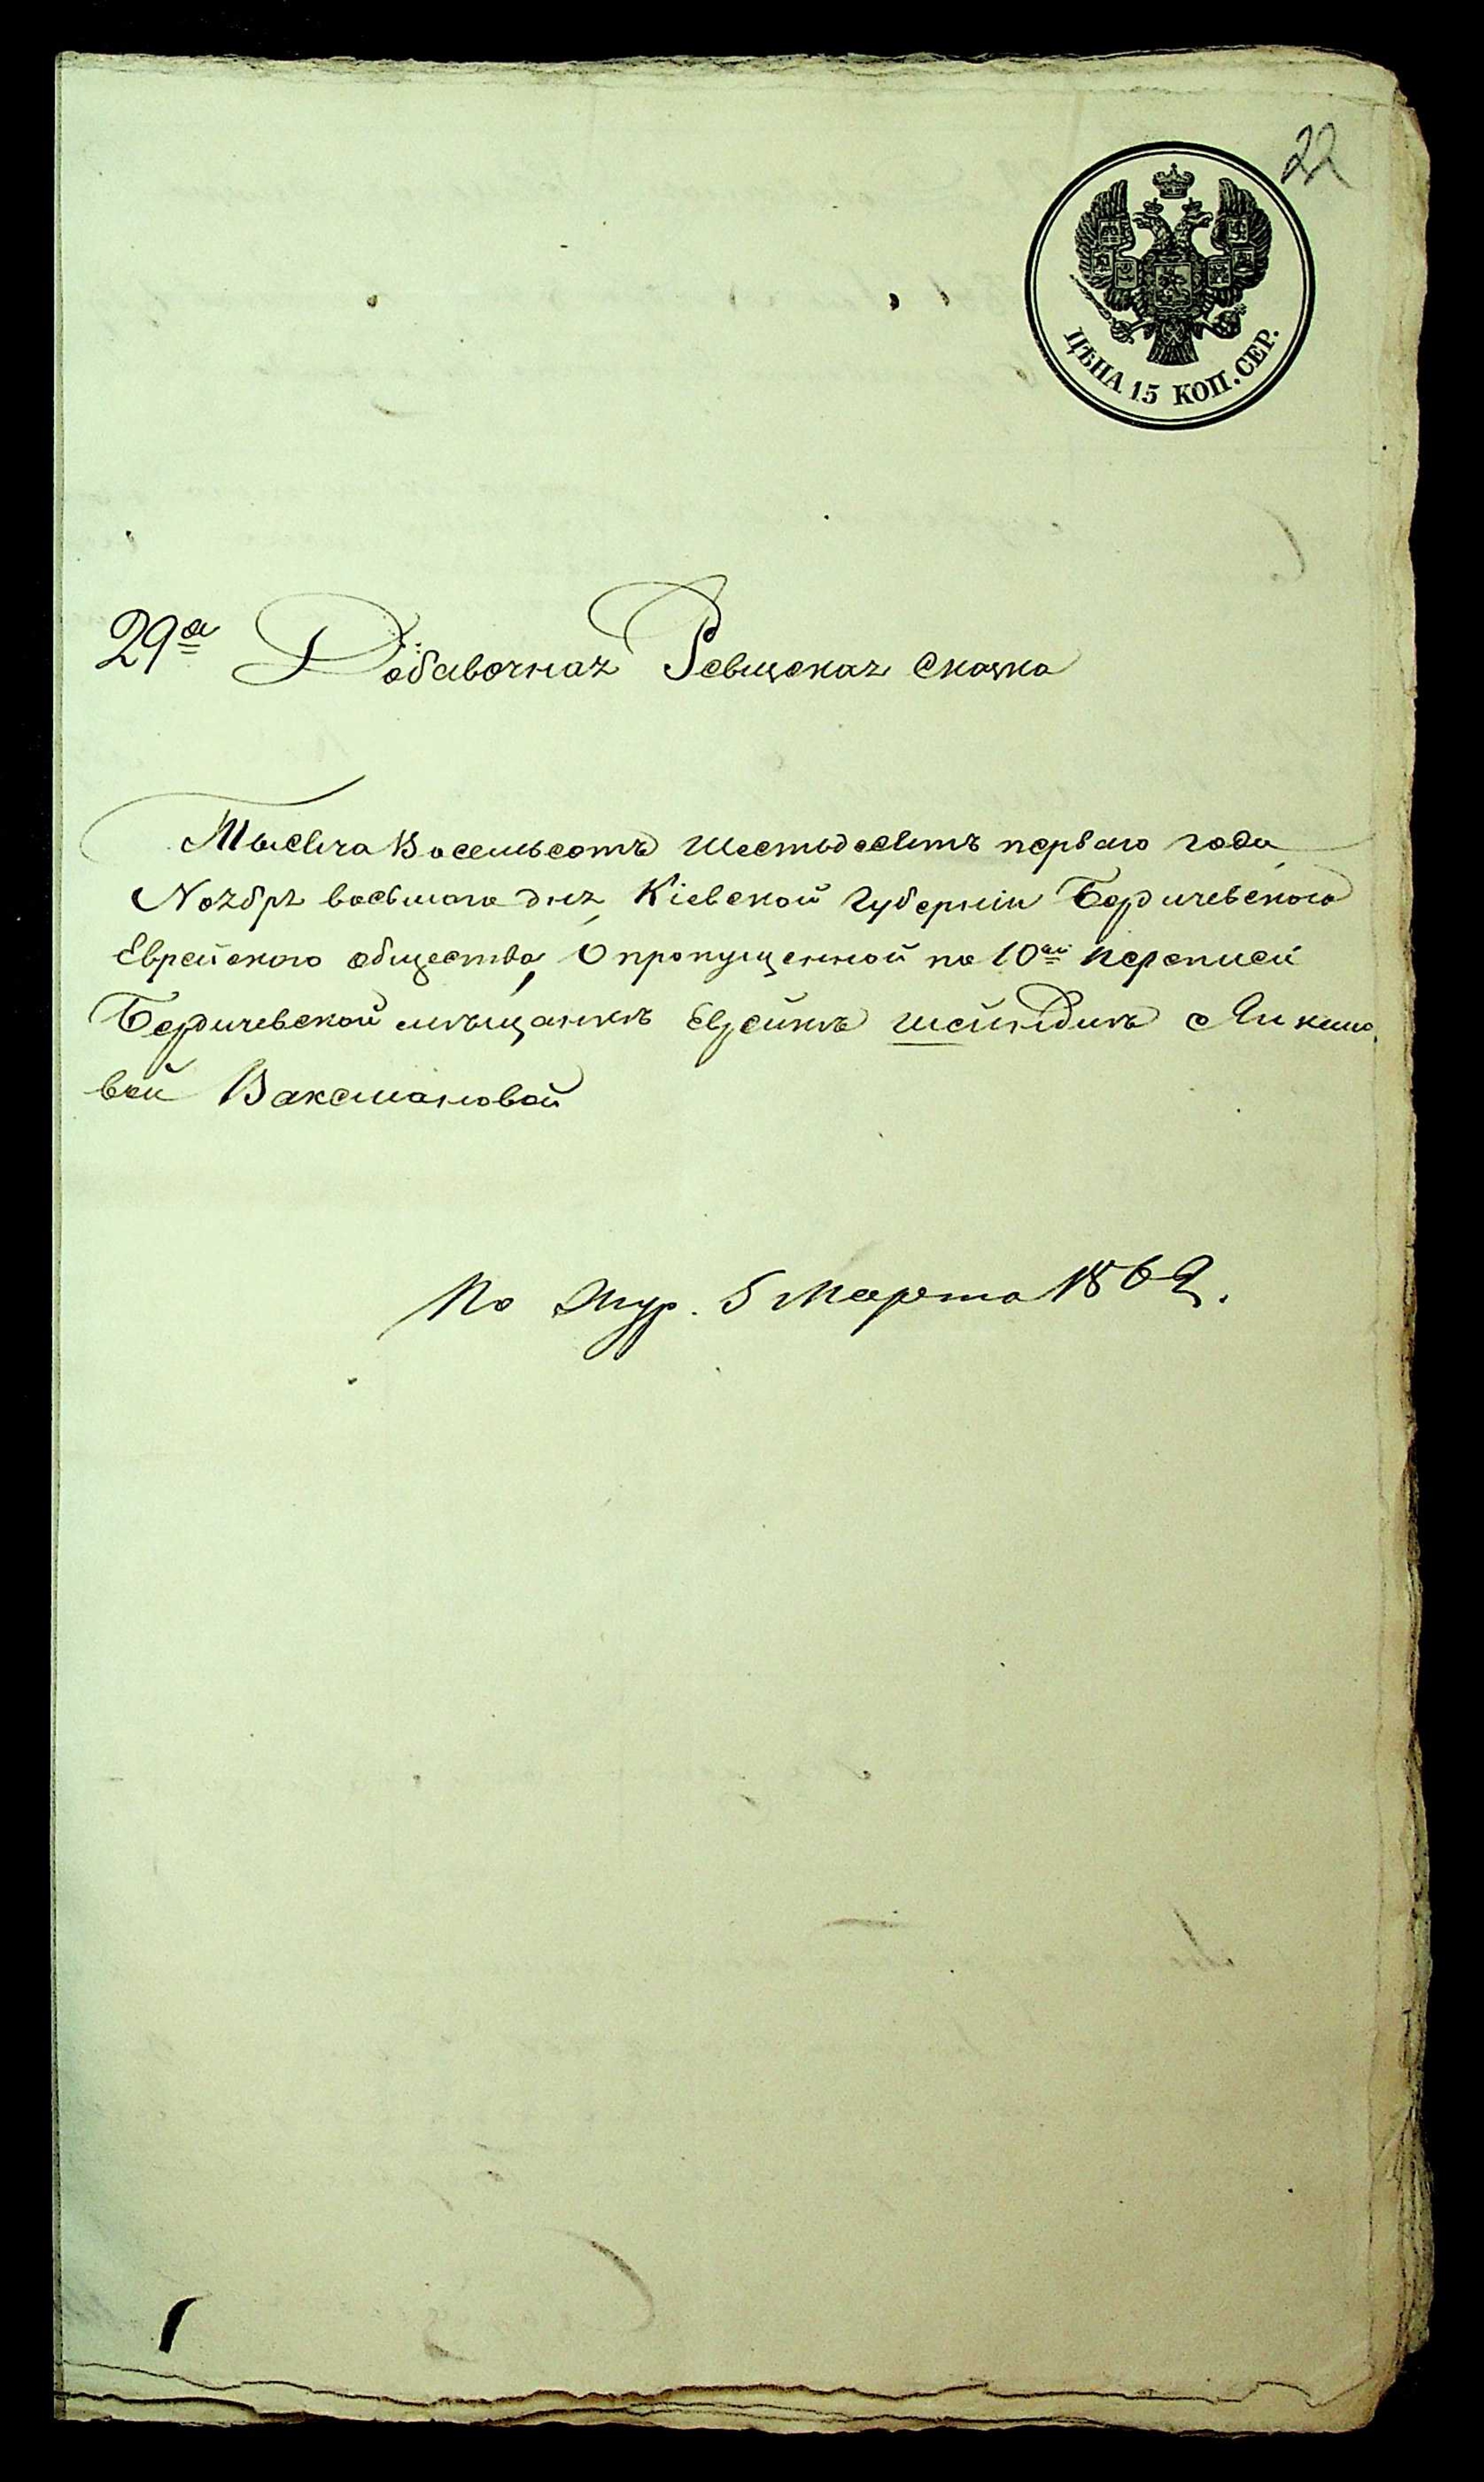 22
ЦѢНА 15 КОП. СЕР.
29ая Добавочная Ревизская сказка
Тысяча Восемьсотъ шестьдесятъ перваго года
Ноября восьмаго дня, Кіевской Губерніи Бердичевского
Еврейского общества, О пропущенной по 10ой переписи
Бердичевской мѣщанкѣ Еврейкѣ Шейндлѣ Янкелё
вой Ваксмановой
По Жур. 5 Марта 1862.